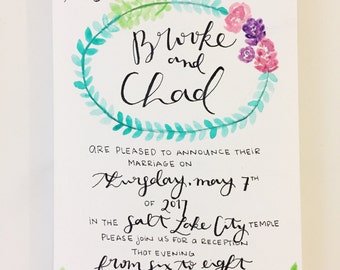 Brooke
and
Chad
ARE PLEASED TO ANNOUNCE THEIR
MARRIAGE ON
Thursday, may 7TH
OF 2017
IN THE Salt Lake City TEMPLE
PLEASE JOIN US FOR A RECEPTION
THAT EVENING
from six to eight